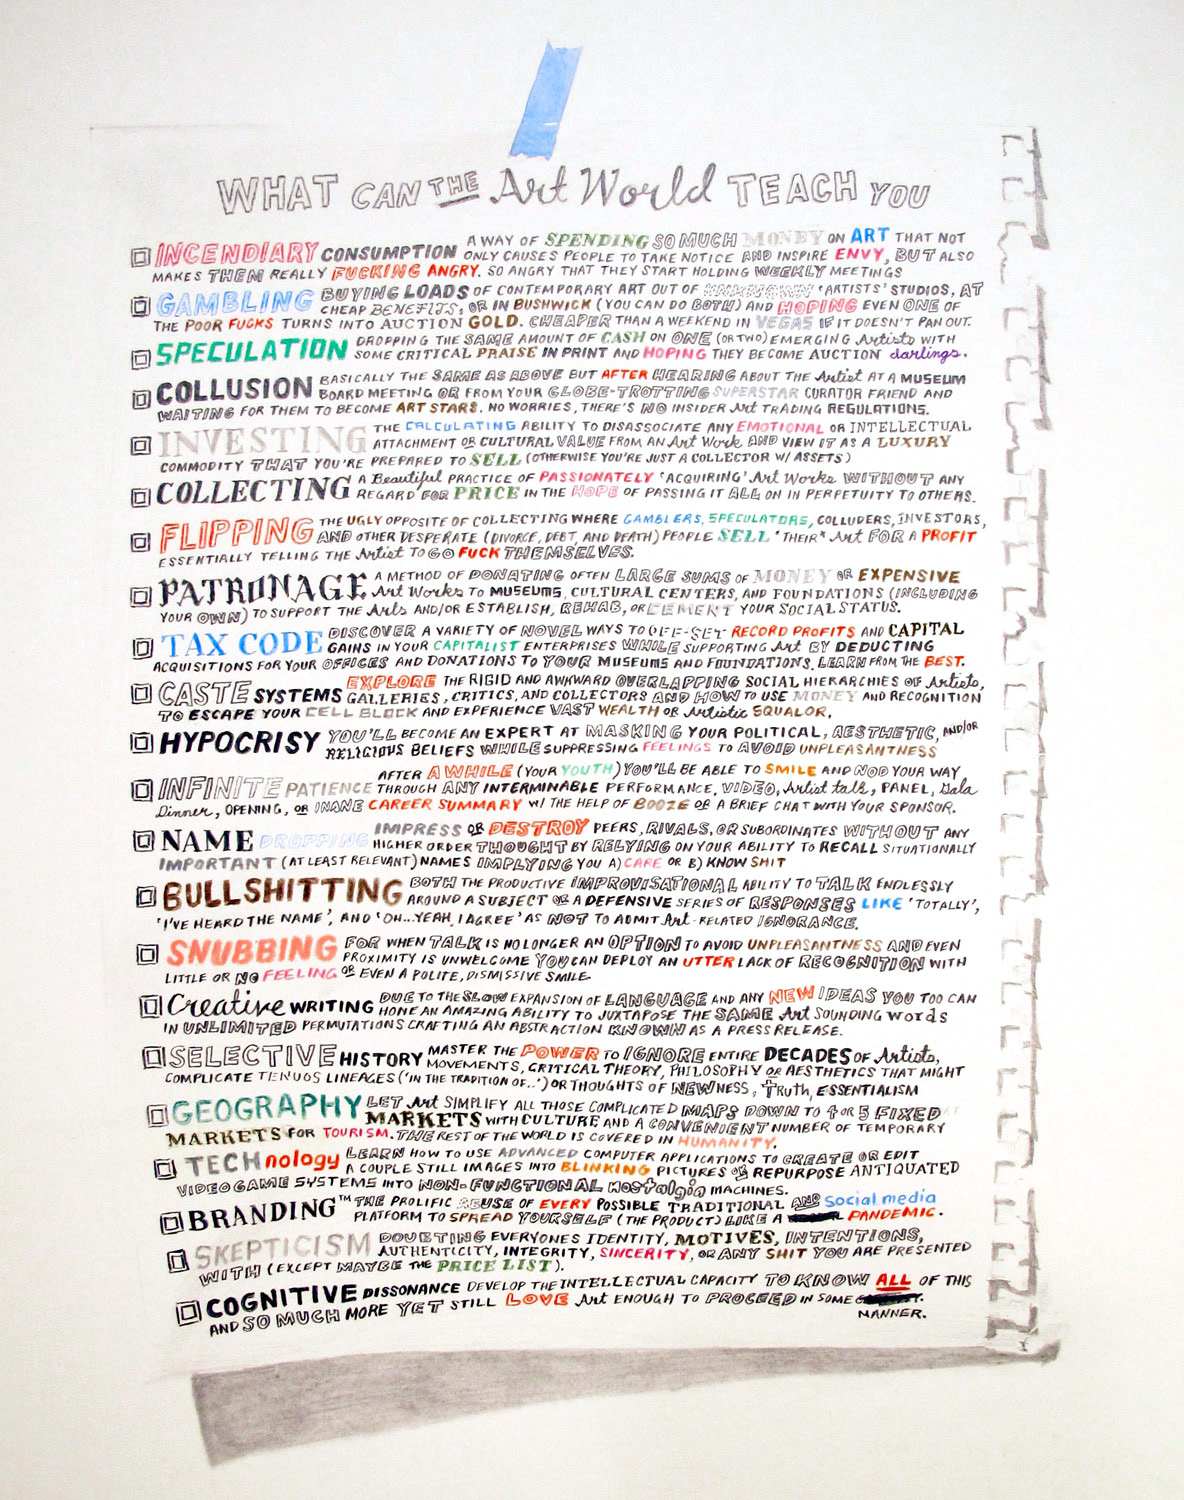 WHAT CAN THE Art World TEACH YOU
INCENDIARY CONSUMPTION A WAY OF SPENDING SO MUCH MONEY ON ART THAT NOT
ONLY CAUSES PEOPLE TO TAKE NOTICE AND INSPIRE ENVY, BUT ALSO
MAKES THEM REALLY FUCKING ANGRY. SO ANGRY THAT THEY START HOLDING WEEKLY MEETINGS
GAMBLING BUYING LOADS OF CONTEMPORARY ART OUT OF UNKNOWN 'ARTISTS' STUDIOS, AT
CHEAP BENEFITS, OR IN BUSHWICK (YOU CAN DO BOTH) AND HOPING EVEN ONE OF
THE POOR FUCKS TURNS INTO AUCTION GOLD. CHEAPER THAN A WEEKEND IN VEGAS IF IT DOESN'T PAN OUT.
SPECULATION DROPPING THE SAME AMOUNT OF CASH ON ONE (OR TWO) EMERGING Artists WITH
SOME CRITICAL PRAISE IN PRINT AND HOPING THEY BECOME AUCTION darlings.
COLLUSION BASICALLY THE SAME AS ABOVE BUT AFTER HEARING ABOUT THE Artist AT A MUSEUM
BOARD MEETING OR FROM YOUR GLOBE-TROTTING SUPERSTAR CURATOR FRIEND AND
WAITING FOR THEM TO BECOME ART STARS. NO WORRIES, THERE'S NO INSIDER Art TRADING REGULATIONS.
INVESTING THE CALCULATING ABILITY TO DISASSOCIATE ANY EMOTIONAL OR INTELLECTUAL
ATTACHMENT OR CULTURAL VALUE FROM AN Art Work AND VIEW IT AS A LUXURY
COMMODITY THAT YOU'RE PREPARED TO SELL (OTHERWISE YOU'RE JUST A COLLECTOR W/ ASSETS)
COLLECTING A Beautiful PRACTICE OF PASSIONATELY 'ACQUIRING' Art Works WITHOUT ANY
REGARD FOR PRICE IN THE HOPE OF PASSING IT ALL ON IN PERPETUITY TO OTHERS.
FLIPPING THE UGLY OPPOSITE OF COLLECTING WHERE GAMBLERS, SPECULATORS, COLLUDERS, INVESTORS,
AND OTHER DESPERATE (DIVORCE, DEBT, AND DEATH) PEOPLE SELL *THEIR* Art FOR A PROFIT
ESSENTIALLY TELLING THE Artist TO GO FUCK THEMSELVES.
PATRONAGE A METHOD OF DONATING OFTEN LARGE SUMS OF MONEY OR EXPENSIVE
Art Works TO MUSEUMS, CULTURAL CENTERS, AND FOUNDATIONS (INCLUDING
YOUR OWN) TO SUPPORT THE Arts AND/OR ESTABLISH, REHAB, OR CEMENT YOUR SOCIAL STATUS.
TAX CODE DISCOVER A VARIETY OF NOVEL WAYS TO OFF-SET RECORD PROFITS AND CAPITAL
GAINS IN YOUR CAPITALIST ENTERPRISES WHILE SUPPORTING Art BY DEDUCTING
ACQUISITIONS FOR YOUR OFFICES AND DONATIONS TO YOUR MUSEUMS AND FOUNDATIONS. LEARN FROM THE BEST.
CASTE SYSTEMS EXPLORE THE RIGID AND AWKWARD OVERLAPPING SOCIAL HIERARCHIES OF Artists,
GALLERIES, CRITICS, AND COLLECTORS AND HOW TO USE MONEY AND RECOGNITION
TO ESCAPE YOUR CELL BLOCK AND EXPERIENCE VAST WEALTH OR Artistic SQUALOR.
HYPOCRISY YOU'LL BECOME AN EXPERT AT MASKING YOUR POLITICAL, AESTHETIC, AND/OR
RELIGIOUS BELIEFS WHILE SUPPRESSING FEELINGS TO AVOID UNPLEASANTNESS
INFINITE PATIENCE AFTER A WHILE (YOUR YOUTH) YOU'LL BE ABLE TO SMILE AND NOD YOUR WAY
THROUGH ANY INTERMINABLE PERFORMANCE, VIDEO, Artist talk, PANEL, Gala
Dinner, OPENING, OR INANE CAREER SUMMARY W/ THE HELP OF BOOZE OR A BRIEF CHAT WITH YOUR SPONSOR.
NAME DROPPING IMPRESS OR DESTROY PEERS, RIVALS, OR SUBORDINATES WITHOUT ANY
HIGHER ORDER THOUGHT BY RELYING ON YOUR ABILITY TO RECALL SITUATIONALLY
IMPORTANT (AT LEAST RELEVANT) NAMES IMPLYING YOU A) CARE OR B) KNOW SHIT
BULLSHITTING BOTH THE PRODUCTIVE IMPROVISATIONAL ABILITY TO TALK ENDLESSLY
AROUND A SUBJECT OR A DEFENSIVE SERIES OF RESPONSES LIKE 'TOTALLY',
'I'VE HEARD THE NAME', AND 'OH...YEAH, I AGREE' AS NOT TO ADMIT Art-RELATED IGNORANCE.
SNUBBING FOR WHEN TALK IS NO LONGER AN OPTION TO AVOID UNPLEASANTNESS AND EVEN
PROXIMITY IS UNWELCOME YOU CAN DEPLOY AN UTTER LACK OF RECOGNITION WITH
LITTLE OR NO FEELING OR EVEN A POLITE, DISMISSIVE SMILE
Creative WRITING DUE TO THE SLOW EXPANSION OF LANGUAGE AND ANY NEW IDEAS YOU TOO CAN
HONE AN AMAZING ABILITY TO JUXTAPOSE THE SAME Art SOUNDING words
IN UNLIMITED PERMUTATIONS CRAFTING AN ABSTRACTION KNOWN AS A PRESS RELEASE.
SELECTIVE HISTORY MASTER THE POWER TO IGNORE ENTIRE DECADES OF Artists,
MOVEMENTS, CRITICAL THEORY, PHILOSOPHY OR AESTHETICS THAT MIGHT
COMPLICATE TENUOS LINEAGES ('IN THE TRADITION OF..') OR THOUGHTS OF NEWNESS, Truth, ESSENTIALISM
GEOGRAPHY LET Art SIMPLIFY ALL THOSE COMPLICATED MAPS DOWN TO 4 OR 5 FIXED
MARKETS WITH CULTURE AND A CONVENIENT NUMBER OF TEMPORARY
MARKETS FOR TOURISM. THE REST OF THE WORLD IS COVERED IN HUMANITY.
TECHnology LEARN HOW TO USE ADVANCED COMPUTER APPLICATIONS TO CREATE OR EDIT
A COUPLE STILL IMAGES INTO BLINKING PICTURES OR REPURPOSE ANTIQUATED
VIDEO GAME SYSTEMS INTO NON-FUNCTIONAL Nostalgia MACHINES.
BRANDING™ THE PROLIFIC ABUSE OF EVERY POSSIBLE TRADITIONAL AND social media
PLATFORM TO SPREAD YOURSELF (THE PRODUCT) LIKE A PANDEMIC.
SKEPTICISM DOUBTING EVERYONES IDENTITY, MOTIVES, INTENTIONS,
AUTHENTICITY, INTEGRITY, SINCERITY, OR ANY SHIT YOU ARE PRESENTED
WITH (EXCEPT MAYBE THE PRICE LIST).
COGNITIVE DISSONANCE DEVELOP THE INTELLECTUAL CAPACITY TO KNOW ALL OF THIS
AND SO MUCH MORE YET STILL LOVE Art ENOUGH TO PROCEED IN SOME
MANNER.